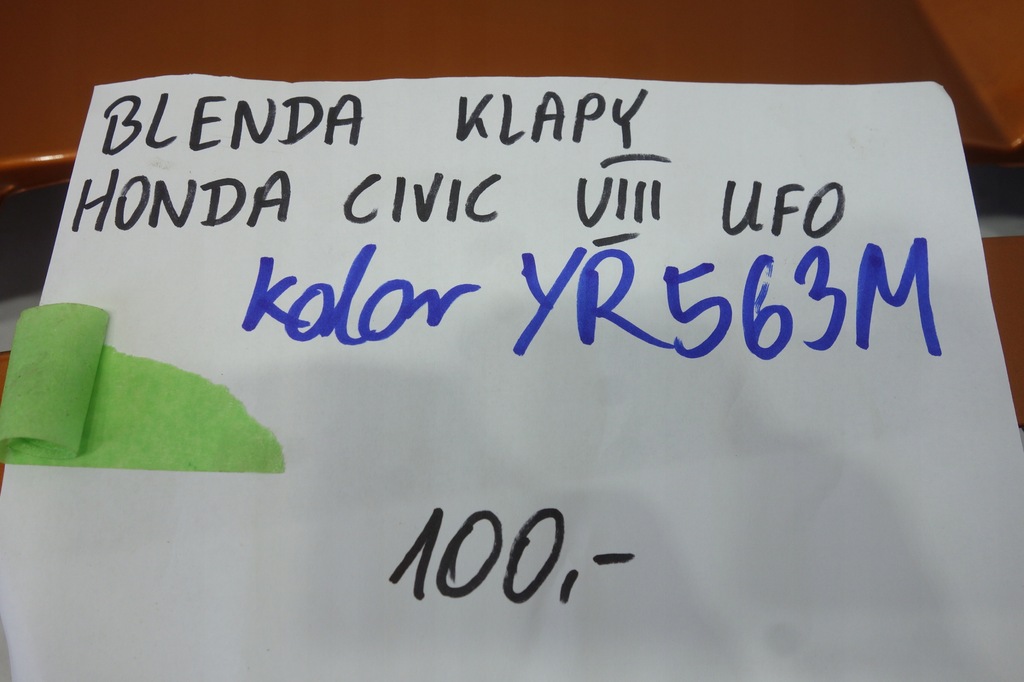 BLENDA KLAPY
HONDA CIVIC VIII UFO
kolor YR563M
100,-